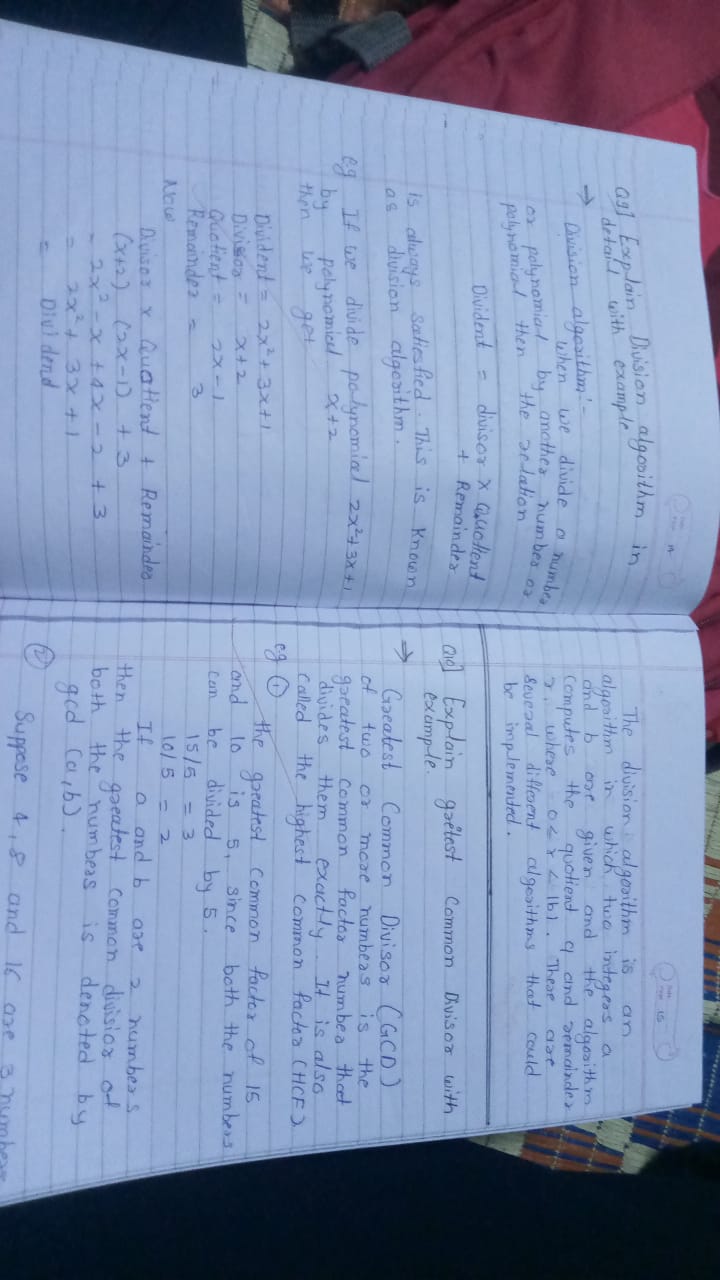 14
Q9] Explain Division algorithm in
detail with example
→
Division algorithm:-
when we divide a number
or polynomial by another number or
polynomial then the relation
Divident = divisor x Quotient
+ Remainder
is always satiesfied. This is known
as division algorithm.
eg If we divide polynomial 2x²+3x+1
by polynomial x+2
then we get
Divident = 2x²+3x+1
Divisor = x+2
Quotient = 2x-1
Remainder = 3
Now
Divisor x Quotient + Remainder
(x+2) (2x-1) + 3
= 2x² - x + 4x - 2 + 3
= 2x² + 3x + 1
= Dividend
15
The division algorithm is an
algorithm in which two integers a
and b are given and the algorithm
computes the quotient q and remainder
r, where 0≤r<|b|. There are
several different algorithms that could
be implemented.
Q10] Explain gretest Common Divisor with
example.
→
Greatest Common Divisor (GCD)
of two or more numbers is the
greatest common factor number that
divides them exactly. It is also
called the highest common factor (HCF)
eg ①
the greatest common factor of 15
and 10 is 5, since both the numbers
can be divided by 5.
15/5 = 3
10/5 = 2
If a and b are 2 numbers
then the greatest common divisior of
both the numbers is denoted by
gcd (a,b).
②
Suppose 4, 8 and 16 are 3 numbers